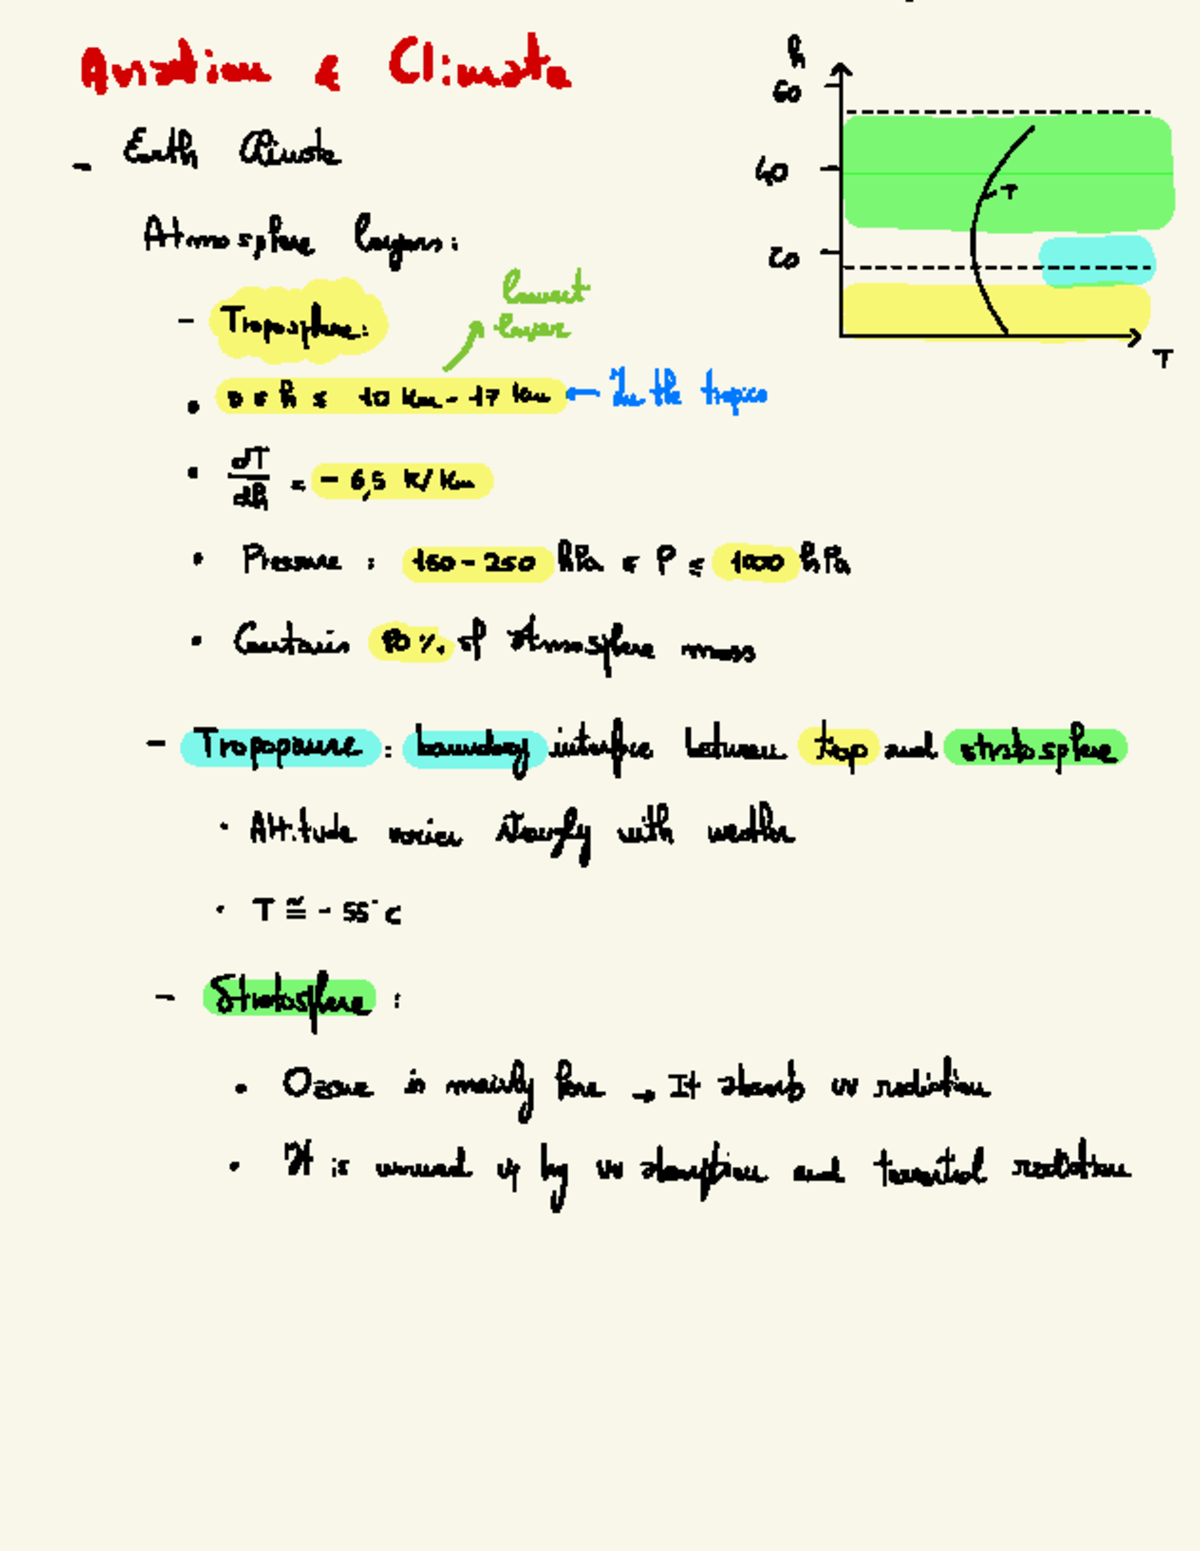 Aviation & Climate
h
60
40
20
T
T
- Earth Climate
Atmosphere layers:
- Troposphere:
lowest
layer
• 0 ≤ h ≤ 10 km - 17 km ← In the tropics
• dT/dh = - 6,5 K/km
• Pressure : 160 - 250 hPa ≤ P ≤ 1000 hPa
• Contains 80 % of atmosphere mass
- Tropopause : boundary interface between trop and stratosphere
• Altitude varies strongly with weather
• T ≅ - 55°C
- Stratosphere :
• Ozone is mainly here → It absorb uv radiation
• It is warmed up by uv absorption and terrestrial radiation